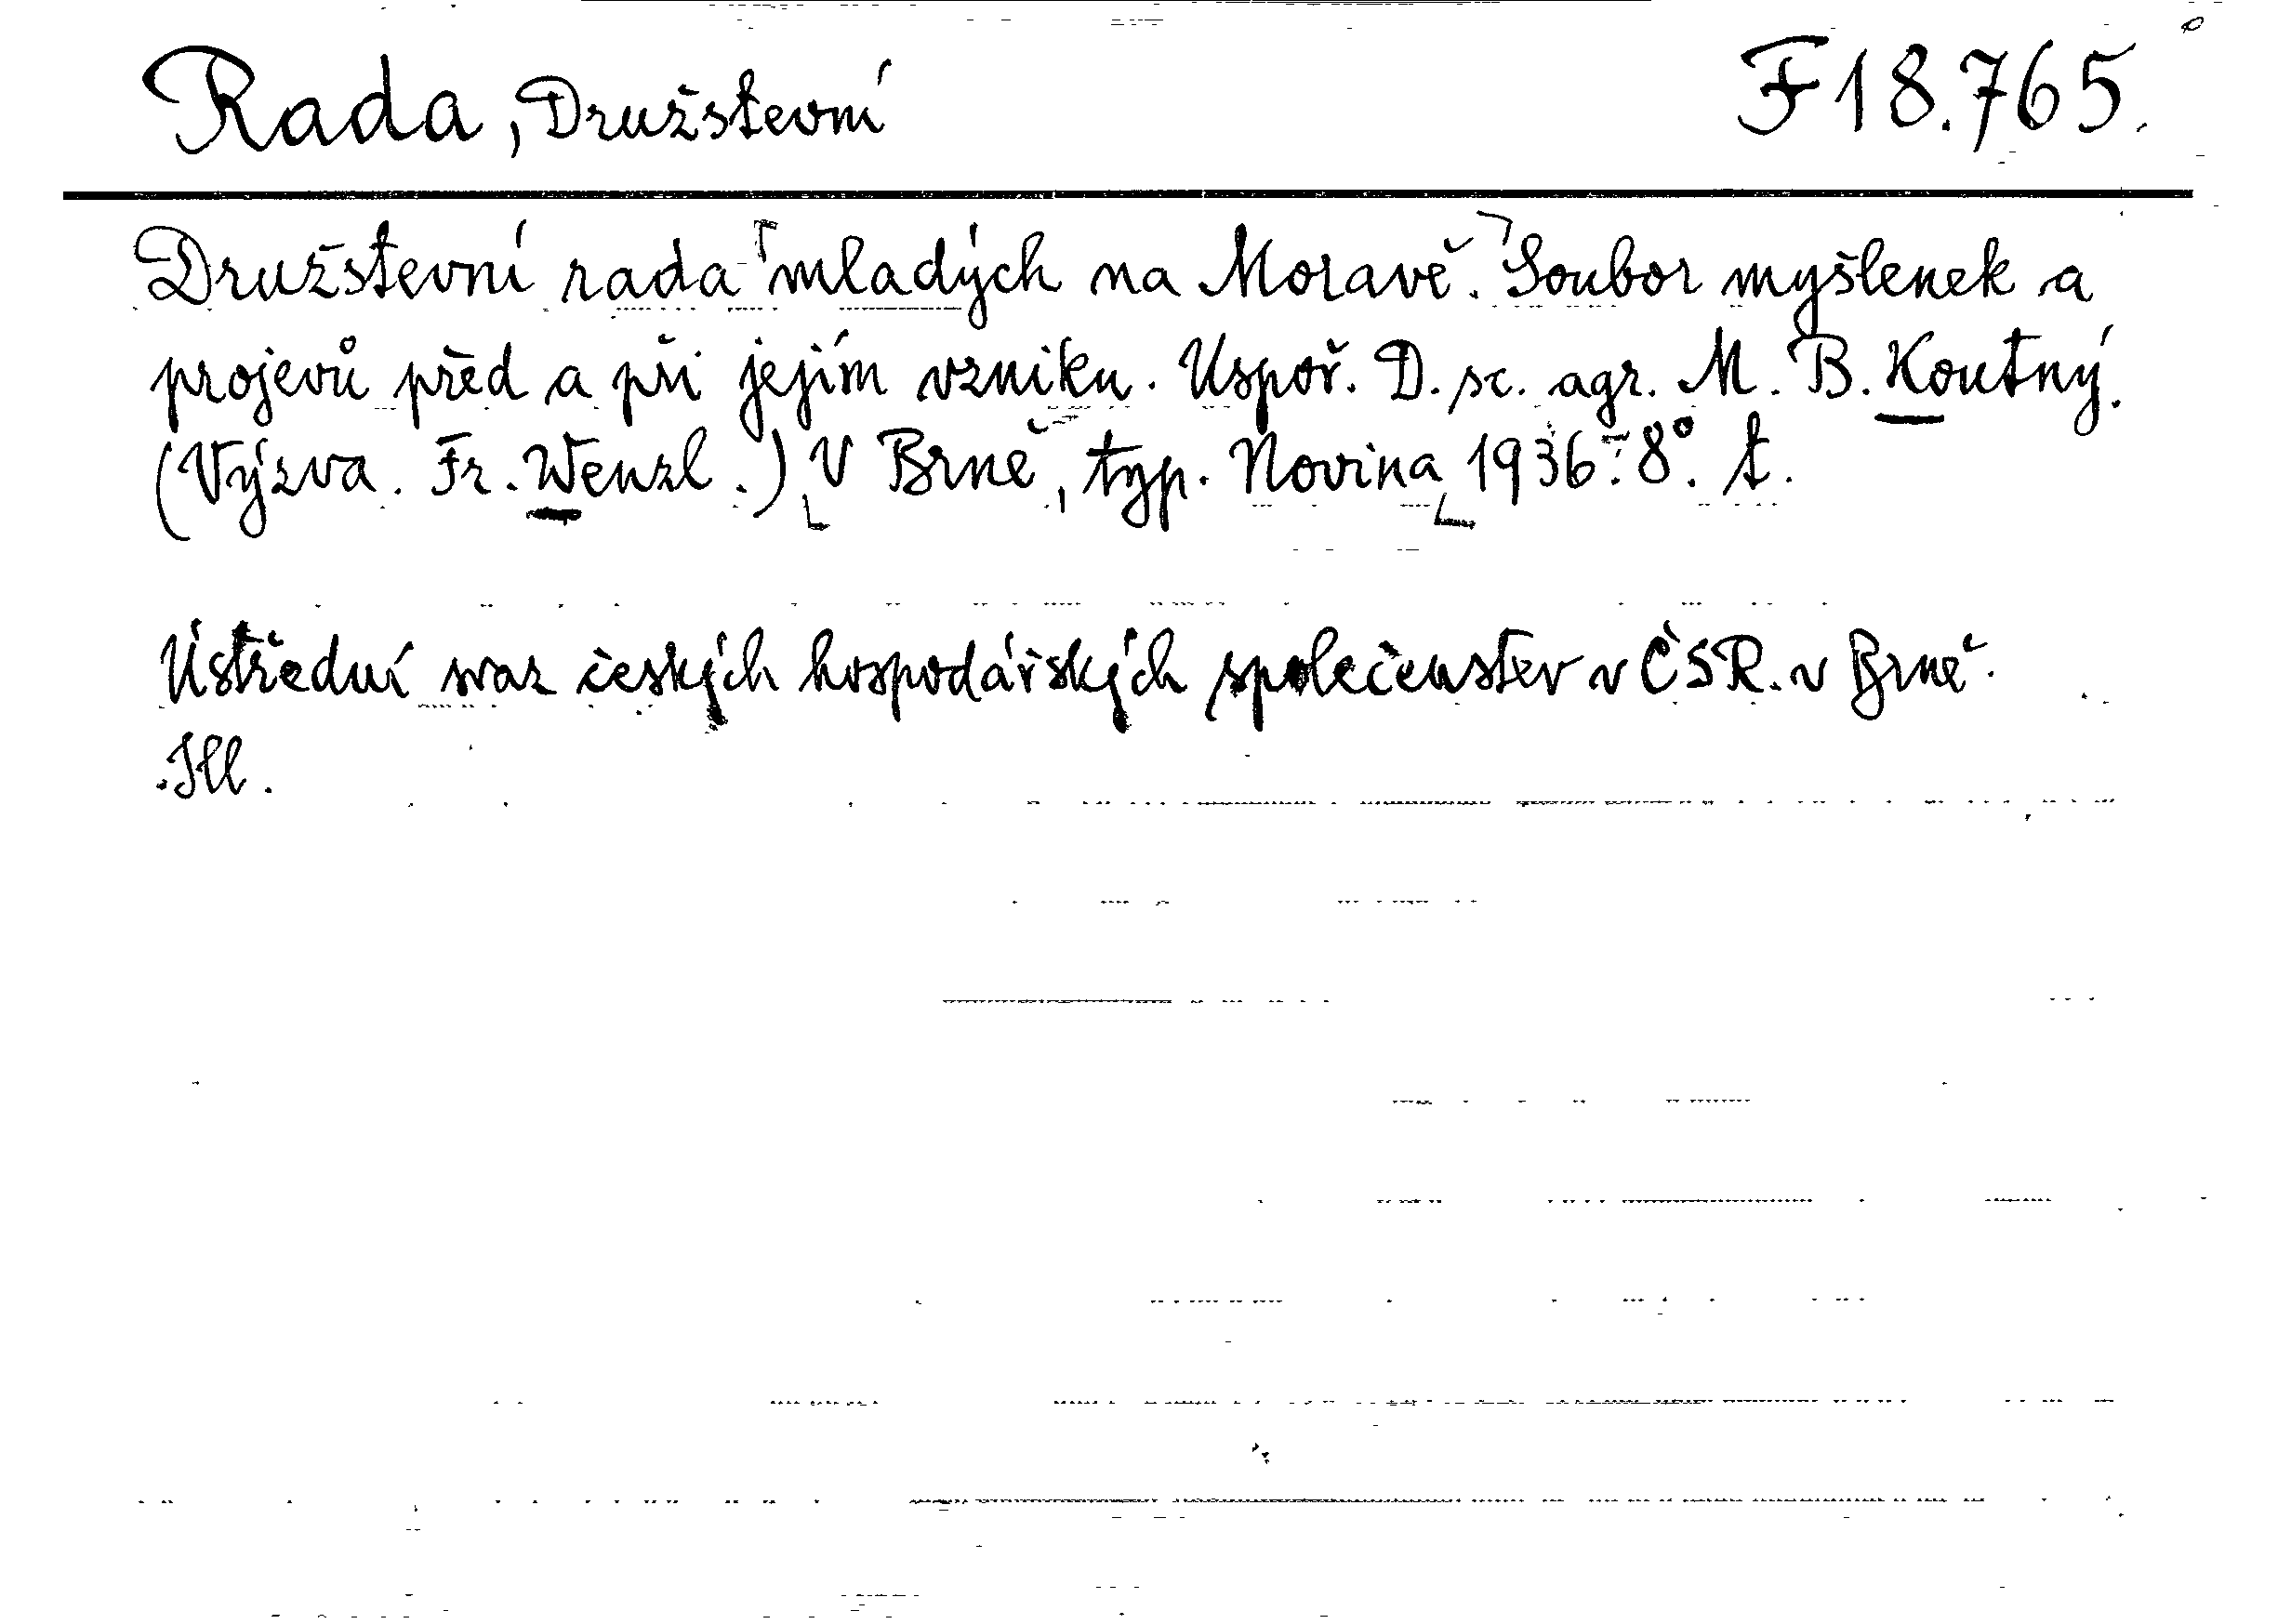 Rada, Družstevní F 18.765.
Družstevní rada ⌈mladých na Moravě.⌉ Soubor myšlenek a
projevů před a při jejím vzniku. Uspoř. D. sc. agr. M. B. Koutný.
(Výzva. Fr. Wenzl.) ⌊V Brně, typ. Novina⌊ 1936. 8°. t.
Ústřední svaz českých hospodářských společenstev v ČSR. v Brně.
Ill.